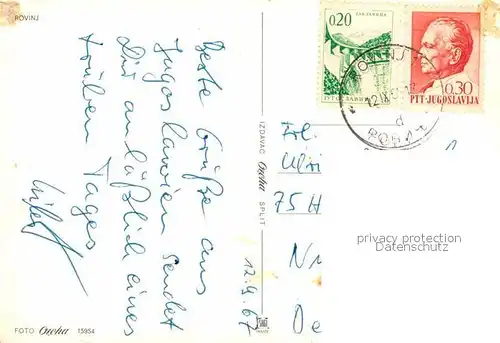 ROVINJ
Beste Grüße aus
Jugoslawien sendet
Dir anläßlich eines
trüben Tages
12.9.67
FOTO Čuka 15954
IZDAVAČ Čuka SPLIT
0,20
JUGOSLAVIJA
0.30
PTT-JUGOSLAVIJA
ROVINJ
d
Frl.
75 H
N
De
privacy protection
Datenschutz